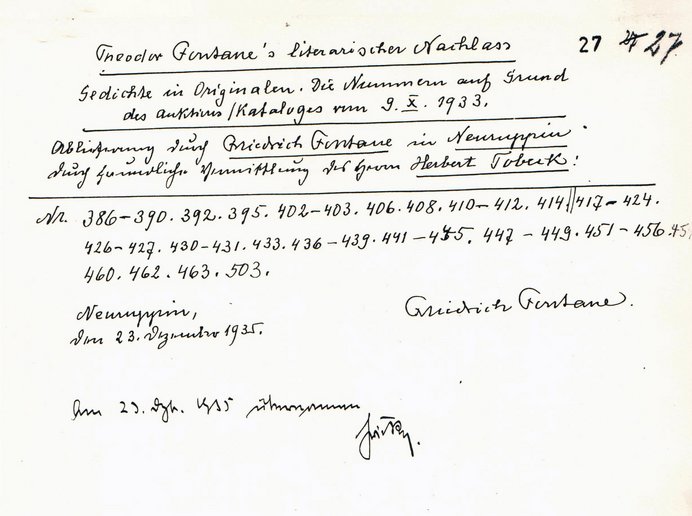 Theodor Fontane's literarischer Nachlass
27 27
Gedichte in Originalen. Die Nummern auf Grund
des Auktions/Kataloges vom 9. X. 1933.
Ablieferung durch Friedrich Fontane in Neuruppin
durch freundliche Vermittlung des Herrn Herbert
Nr. 386–390. 392. 395. 402–403. 406. 408. 410–412. 414. 417–424.
426–427. 430–431. 433. 436–439. 441–445. 447–449. 451–456.
460. 462. 463. 503.
Neuruppin,
den 23. Dezember 1935.
Friedrich Fontane.
Am 23. Dzb. 1935 übernommen